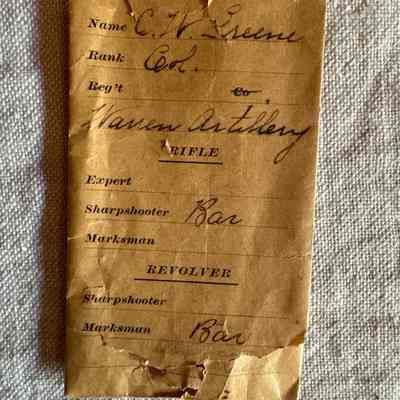 Name C. W. Greene
Rank Col.
Reg't Co.
Warren Artillery
RIFLE
Expert
Sharpshooter Bar
Marksman
REVOLVER
Sharpshooter
Marksman Bar